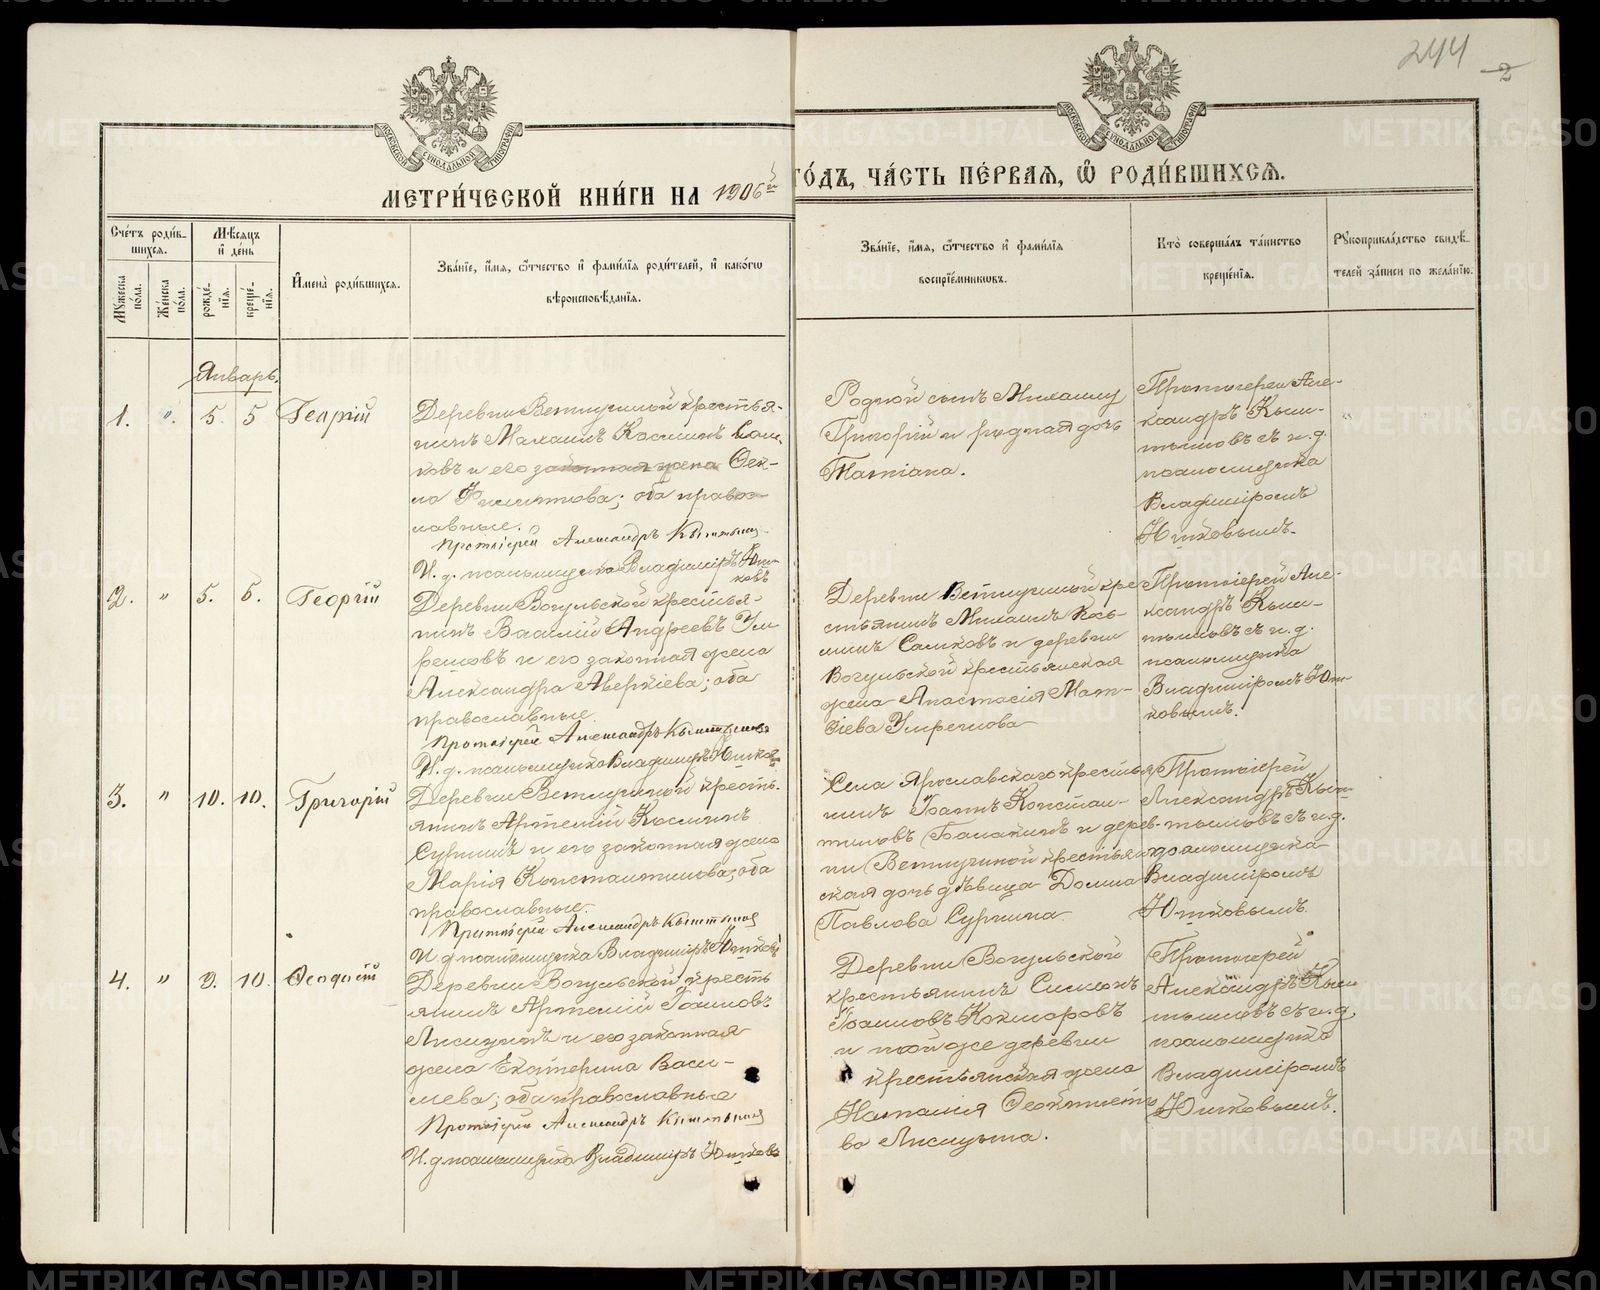 244
2
МЕТРИ́ЧЕСКОЙ КНИ́ГИ НА 1906 й
ГО́ДЪ, ЧА́СТЬ ПЕ́РВАЯ, Ѿ РОДИ́ВШИХСЯ.
Сче́тъ роди́в-
шихся.
Мꙋ́жеска по́ла.
Же́нска по́ла.
Мѣ́сяцъ и҆ де́нь
рожде́-нїя.
креще́-нїя.
И҆мена̀ роди́вшихся.
Зва́нїе, и҆́мя, ѻ҆́тчество и҆ фами́лїя роди́телей, и҆ како́гѡ
вѣроисповѣ́данїя.
Зва́нїе, и҆́мя, ѻ҆́тчество и҆ фами́лїя
воспрїе́мниковъ.
Кто̀ соверша́лъ та́инство
креще́нїя.
Рꙋкоприкла́дство свидѣ́-
телей за́писи по жела́нїю.
Январь.
1. " 5. 5 Георгій
Деревни Ветлугиной крестья-
нинъ Михаилъ Косминъ Сыч
ковъ и его законная жена Ѳек-
ла Филиппова; оба правос-
лавные.
Протоіерей Александръ Кыштымов
И. д. псаломщика Владиміръ
Родной сынъ Михаилу
Григорій и родная дочь
Татіана.
Протоіерей Але-
ксандръ Кыш-
тымовъ съ и. д.
псаломщика
Владиміромъ
2. " 5. 6. Георгій
Деревни Вогульской крестья-
нинъ Василій Андреевъ
и его законная жена
Александра Аверкіева; оба
православные.
Протоіерей Александръ Кыштымовъ
И. д. псаломщика Владиміръ
Деревни Ветлугиной кре
стьянинъ Михаилъ Кось-
минъ и деревни
Вогульской крестьянская
жена Анастасія Мат-
ѳіева
Протоіерей Але-
ксандръ Кыш-
тымовъ съ и. д.
псаломщика
Владиміромъ
3. " 10. 10. Григорій
Деревни Ветлугиной кресть-
янинъ Артемій Косминъ
и его законная жена
Марія Константинова; оба
православные.
Протоіерей Александръ Кыштымов
И. д. псаломщика Владиміръ
Села Ярославскаго крестья
нинъ Іоаннъ Констан-
тиновъ Балакинъ и дерев-
ни Ветлугиной крестьян
ская дочь дѣвица Домна
Павлова
Протоіерей
Александръ Кыш-
тымовъ съ и. д.
псаломщика
Владиміромъ
4. " 9. 10. Ѳеодосій
Деревни Вогульской кресть
янинъ Артемій Іоанновъ
и его законная
жена Екатерина Васи-
льева; оба православные
Протоіерей Александръ Кыштымов
И. д. псаломщика Владиміръ
Деревни Вогульской
крестьянинъ Симеонъ
Іоанновъ Кокшаровъ
и той же деревни
крестьянская жена
Наталія Ѳеоктисто
ва
Протоіерей
Александръ Кыш
тымовъ съ и. д.
псаломщика
Владиміромъ
METRIKI.GASO-URAL.RU